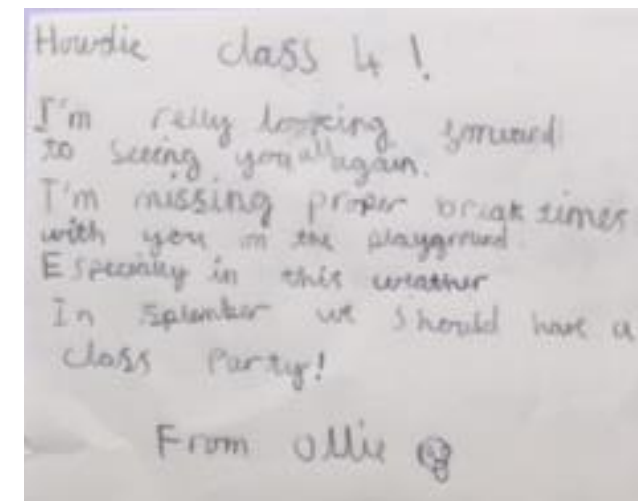 Howdie class 4!
I'm relly looking forward
to seeing you all again.
I'm missing proper break times
with you in the playground.
Especially in this weather
In Septmber we should have a
class Party!
From Ollie